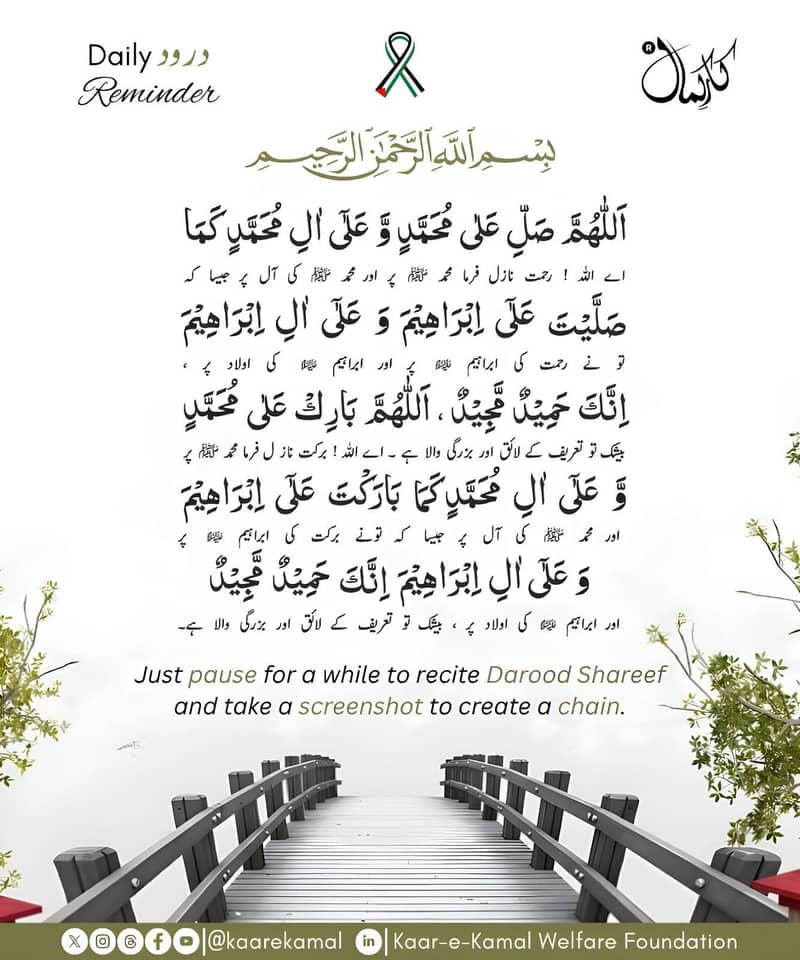 Daily درود
Reminder
کارِکمال
®
بِسْمِ اللّٰهِ الرَّحْمٰنِ الرَّحِيْمِ
اَللّٰهُمَّ صَلِّ عَلٰى مُحَمَّدٍ وَّ عَلٰٓى اٰلِ مُحَمَّدٍ كَمَا
اے اللہ ! رحمت نازل فرما محمد ﷺ پر اور محمد ﷺ کی آل پر جیسا کہ
صَلَّيْتَ عَلٰٓى اِبْرَاهِيْمَ وَ عَلٰٓى اٰلِ اِبْرَاهِيْمَ
تو نے رحمت کی ابراہیم علیہ السلام پر اور ابراہیم علیہ السلام کی اولاد پر ،
اِنَّكَ حَمِيْدٌ مَّجِيْدٌ ، اَللّٰهُمَّ بَارِكْ عَلٰى مُحَمَّدٍ
بیشک تو تعریف کے لائق اور بزرگی والا ہے ۔ اے اللہ ! برکت نازل فرما محمد ﷺ پر
وَّ عَلٰٓى اٰلِ مُحَمَّدٍ كَمَا بَارَكْتَ عَلٰٓى اِبْرَاهِيْمَ
اور محمد ﷺ کی آل پر جیسا کہ تونے برکت کی ابراہیم علیہ السلام پر
وَ عَلٰٓى اٰلِ اِبْرَاهِيْمَ اِنَّكَ حَمِيْدٌ مَّجِيْدٌ
اور ابراہیم علیہ السلام کی اولاد پر ، بیشک تو تعریف کے لائق اور بزرگی والا ہے۔
Just pause for a while to recite Darood Shareef
and take a screenshot to create a chain.
@kaarekamal in Kaar-e-Kamal Welfare Foundation